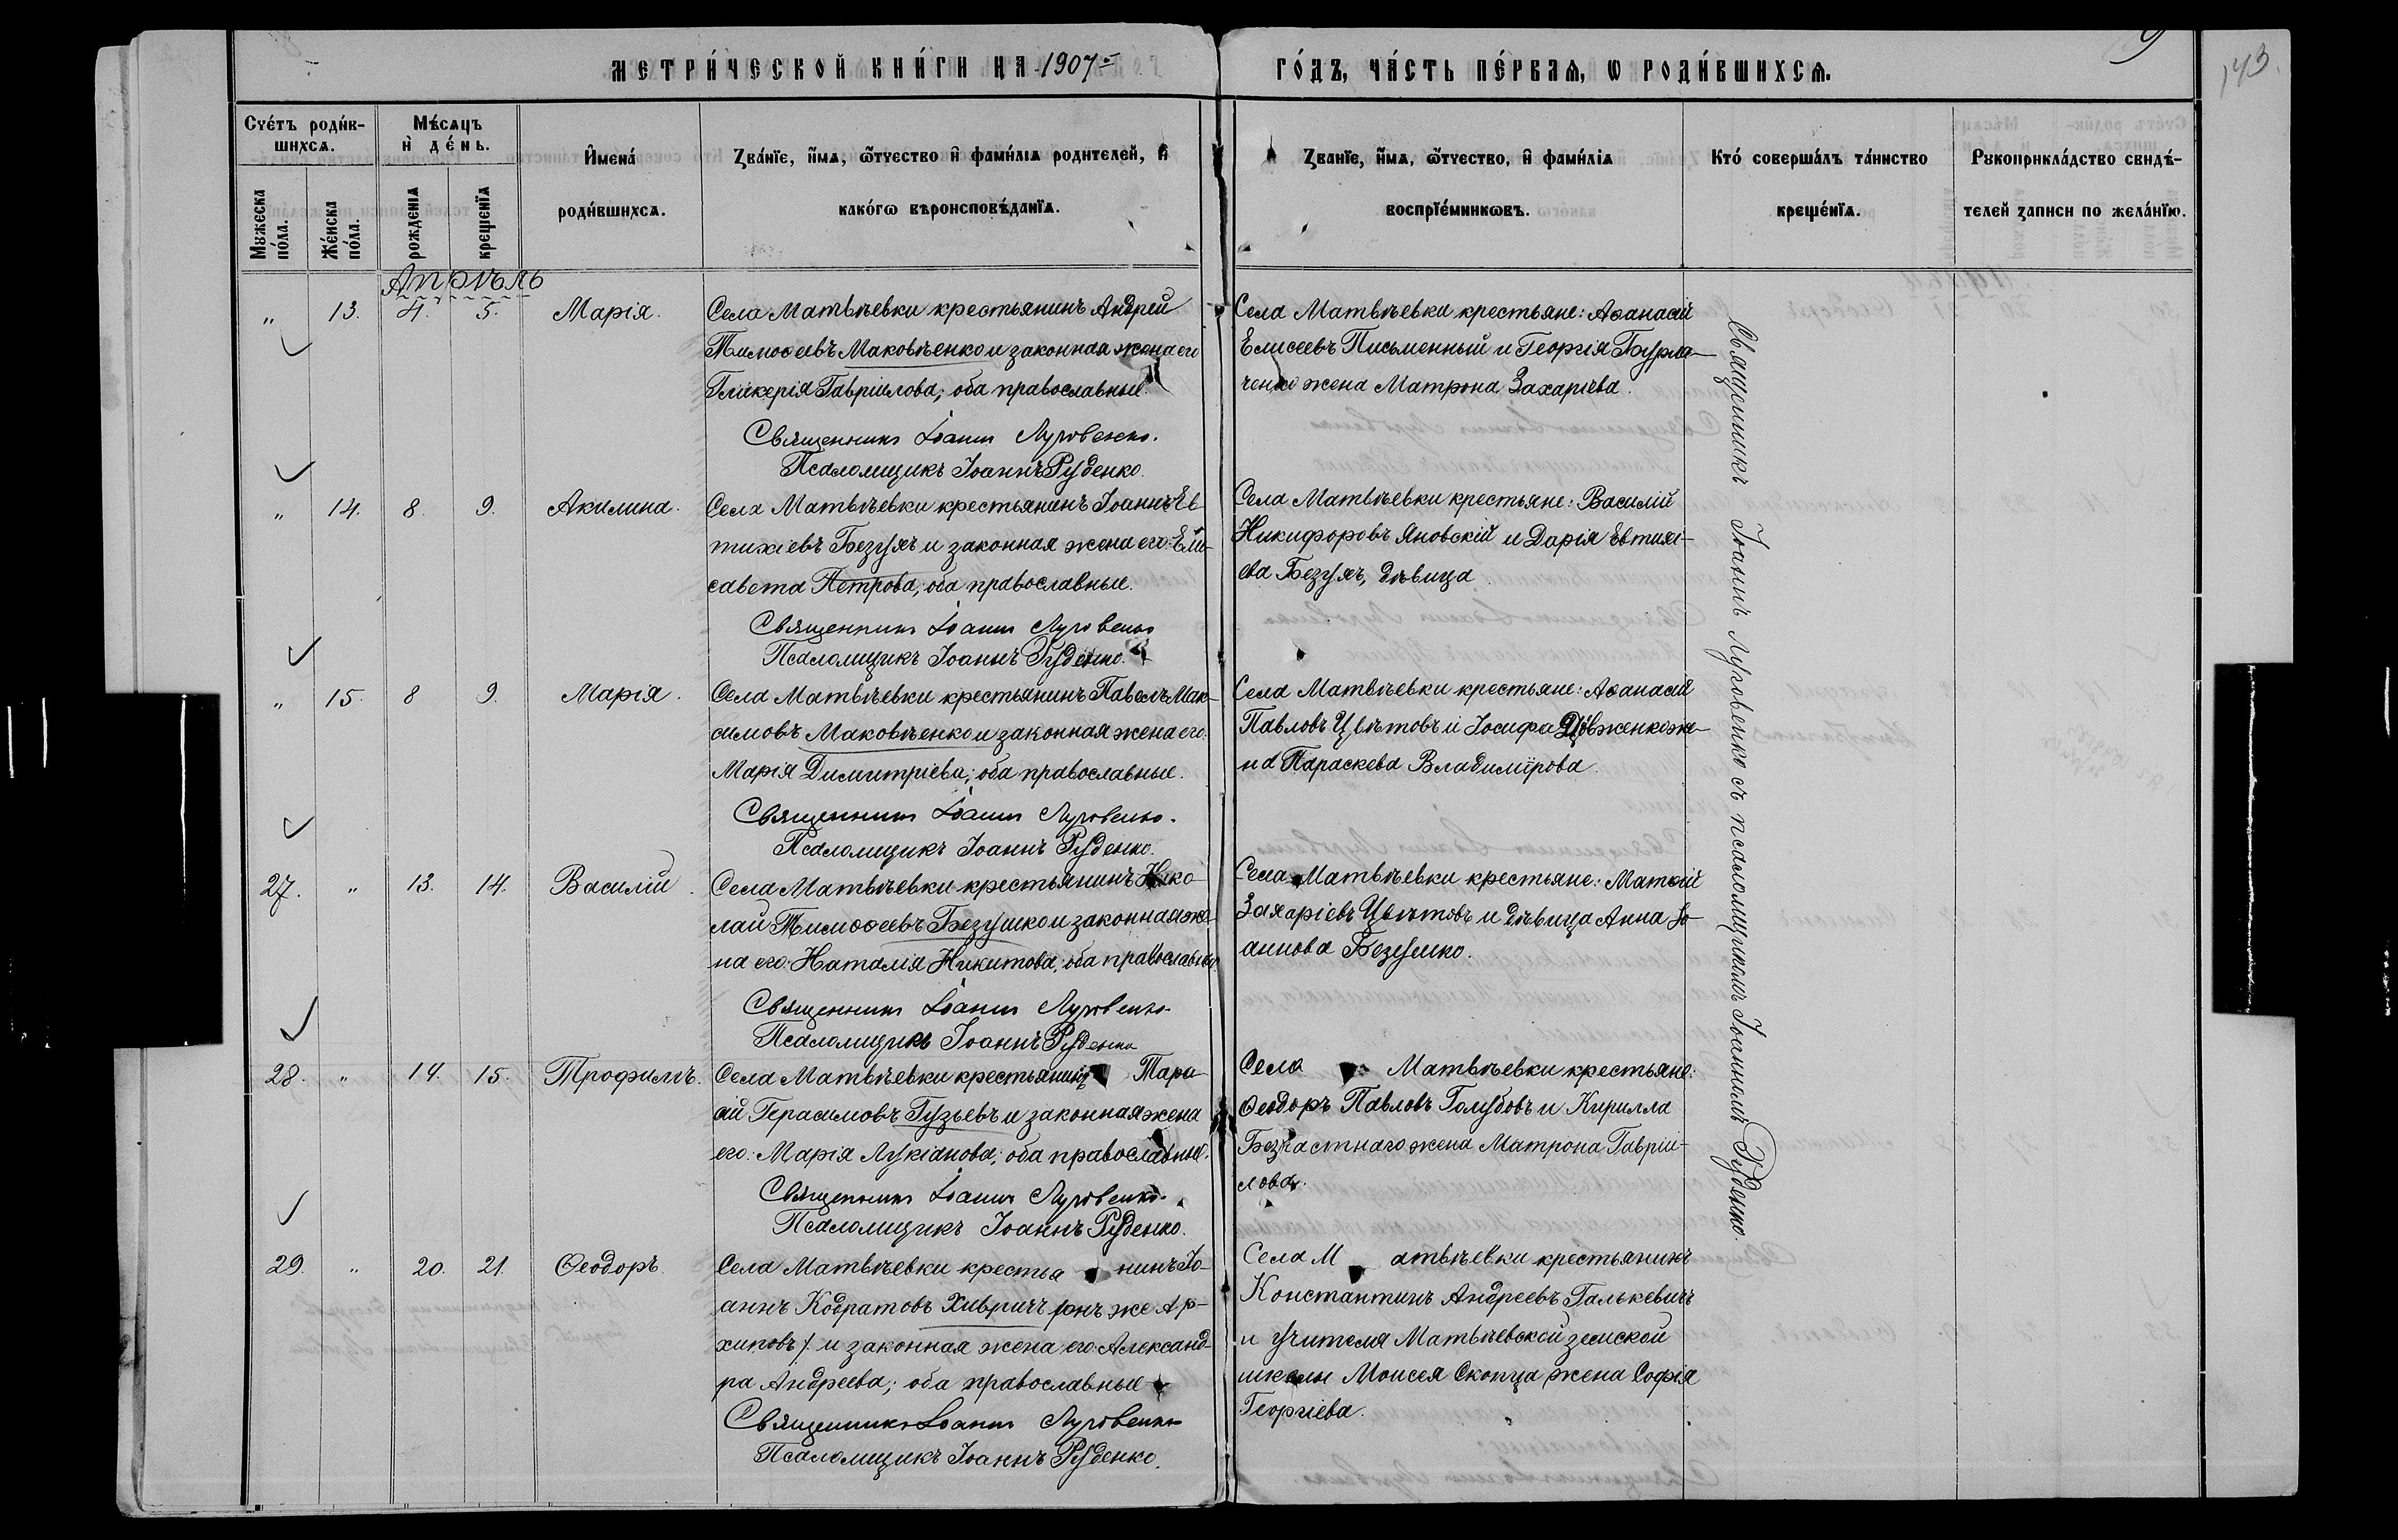 МЕТРИ́ЧЕСКОЙ КНИ́ГИ НА 1907 ГО́ДЪ, ЧА́СТЬ ПЕ́РВАѦ, Ѡ РОДИ́ВШИХСѦ.
9
143.
Счéтъ роди́в-
шихсѧ.
Мужеска по́ла.
Же́нска по́ла.
Мѣ́сѧцъ
и҆ де́нь.
рожденїѧ
крещенїѧ
И҆мена́
роди́вшихсѧ.
Зва́нїе, и҆́мѧ, ѻ҆́тчество и҆ фами́лїѧ родителей, и҆
како́гѡ вѣроисповѣ́данїѧ.
Званїе, и҆́мѧ, ѻ҆́тчество, и҆ фами́лїѧ
воспрїе́мникѡвъ.
Кто́ соверша́лъ та́инство
креще́нїѧ.
Рукоприкла́дство свидѣ́-
телей записи по жела́нїю.
Апрѣль
" 13. 4. 5. Марія.
Села Матвѣевки крестьянинъ Андрей
Тимоѳеевъ Маковѣенко и законная жена его
Гликерія Гавріилова; оба православные.
Священникъ Іоаннъ Луговенко.
Псаломщикъ Іоаннъ Руденко.
Села Матвѣевки крестьяне: Аѳанасій
Елисеевъ Письменный и Георгія Бурла-
ченко жена Матрона Захаріева.
" 14. 8. 9. Акилина.
Села Матвѣевки крестьянинъ Іоаннъ Ев-
тихіевъ Безухъ и законная жена его: Ели-
савета Петрова; оба православные.
Священникъ Іоаннъ Луговенко
Псаломщикъ Іоаннъ Руденко.
Села Матвѣевки крестьяне: Василій
Никифоровъ Яновскій и Дарія Евтихі-
ева Безухъ, дѣвица.
" 15. 8 9. Марія.
Села Матвѣевки крестьянинъ Павелъ Мак-
симовъ Маковѣенко и законная жена его:
Марія Димитріева; оба православные.
Священникъ Іоаннъ Луговенко.
Псаломщикъ Іоаннъ Руденко.
Села Матвѣевки крестьяне: Аѳанасій
Павловъ Цвѣтовъ и Іосифа Довженко же-
на Параскева Владимірова.
27. " 13. 14. Василій.
Села Матвѣевки крестьянинъ Нико-
лай Тимоѳеевъ Безушко и законная же-
на его: Наталія Никитова; оба православные
Священникъ Іоаннъ Луговенко.
Псаломщикъ Іоаннъ Руденко
Села Матвѣевки крестьяне: Матѳій
Захаріевъ Цвѣтовъ и дѣвица Анна Іо-
аннова Безушко.
28. " 14. 15. Трофимъ.
Села Матвѣевки крестьянинъ Тара-
сій Герасимовъ Гузьевъ и законная жена
его: Марія Лукіанова; оба православные.
Священникъ Іоаннъ Луговенко.
Псаломщикъ Іоаннъ Руденко.
Села Матвѣевки крестьяне:
Ѳеодоръ Павловъ Голубовъ и Кирилла
Безчастнаго жена Матрона Гавріи-
лова.
29. " 20. 21. Ѳеодоръ.
Села Матвѣевки крестья нинъ Іо-
аннъ Кодратовъ Хивричъ /онъ же Ар-
хиповъ/ и законная жена его: Александ-
ра Андреева; оба православные
Священникъ Іоаннъ Луговенко
Псаломщикъ Іоаннъ Руденко.
Села М атвѣевки крестьянинъ
Константинъ Андреевъ Галькевичъ
и учителя Матвѣевской земской
школы Моисея Скопца жена Софія
Георгіева.
Священникъ Іоаннъ Луговенко съ псаломщикомъ Іоанномъ Руденко.